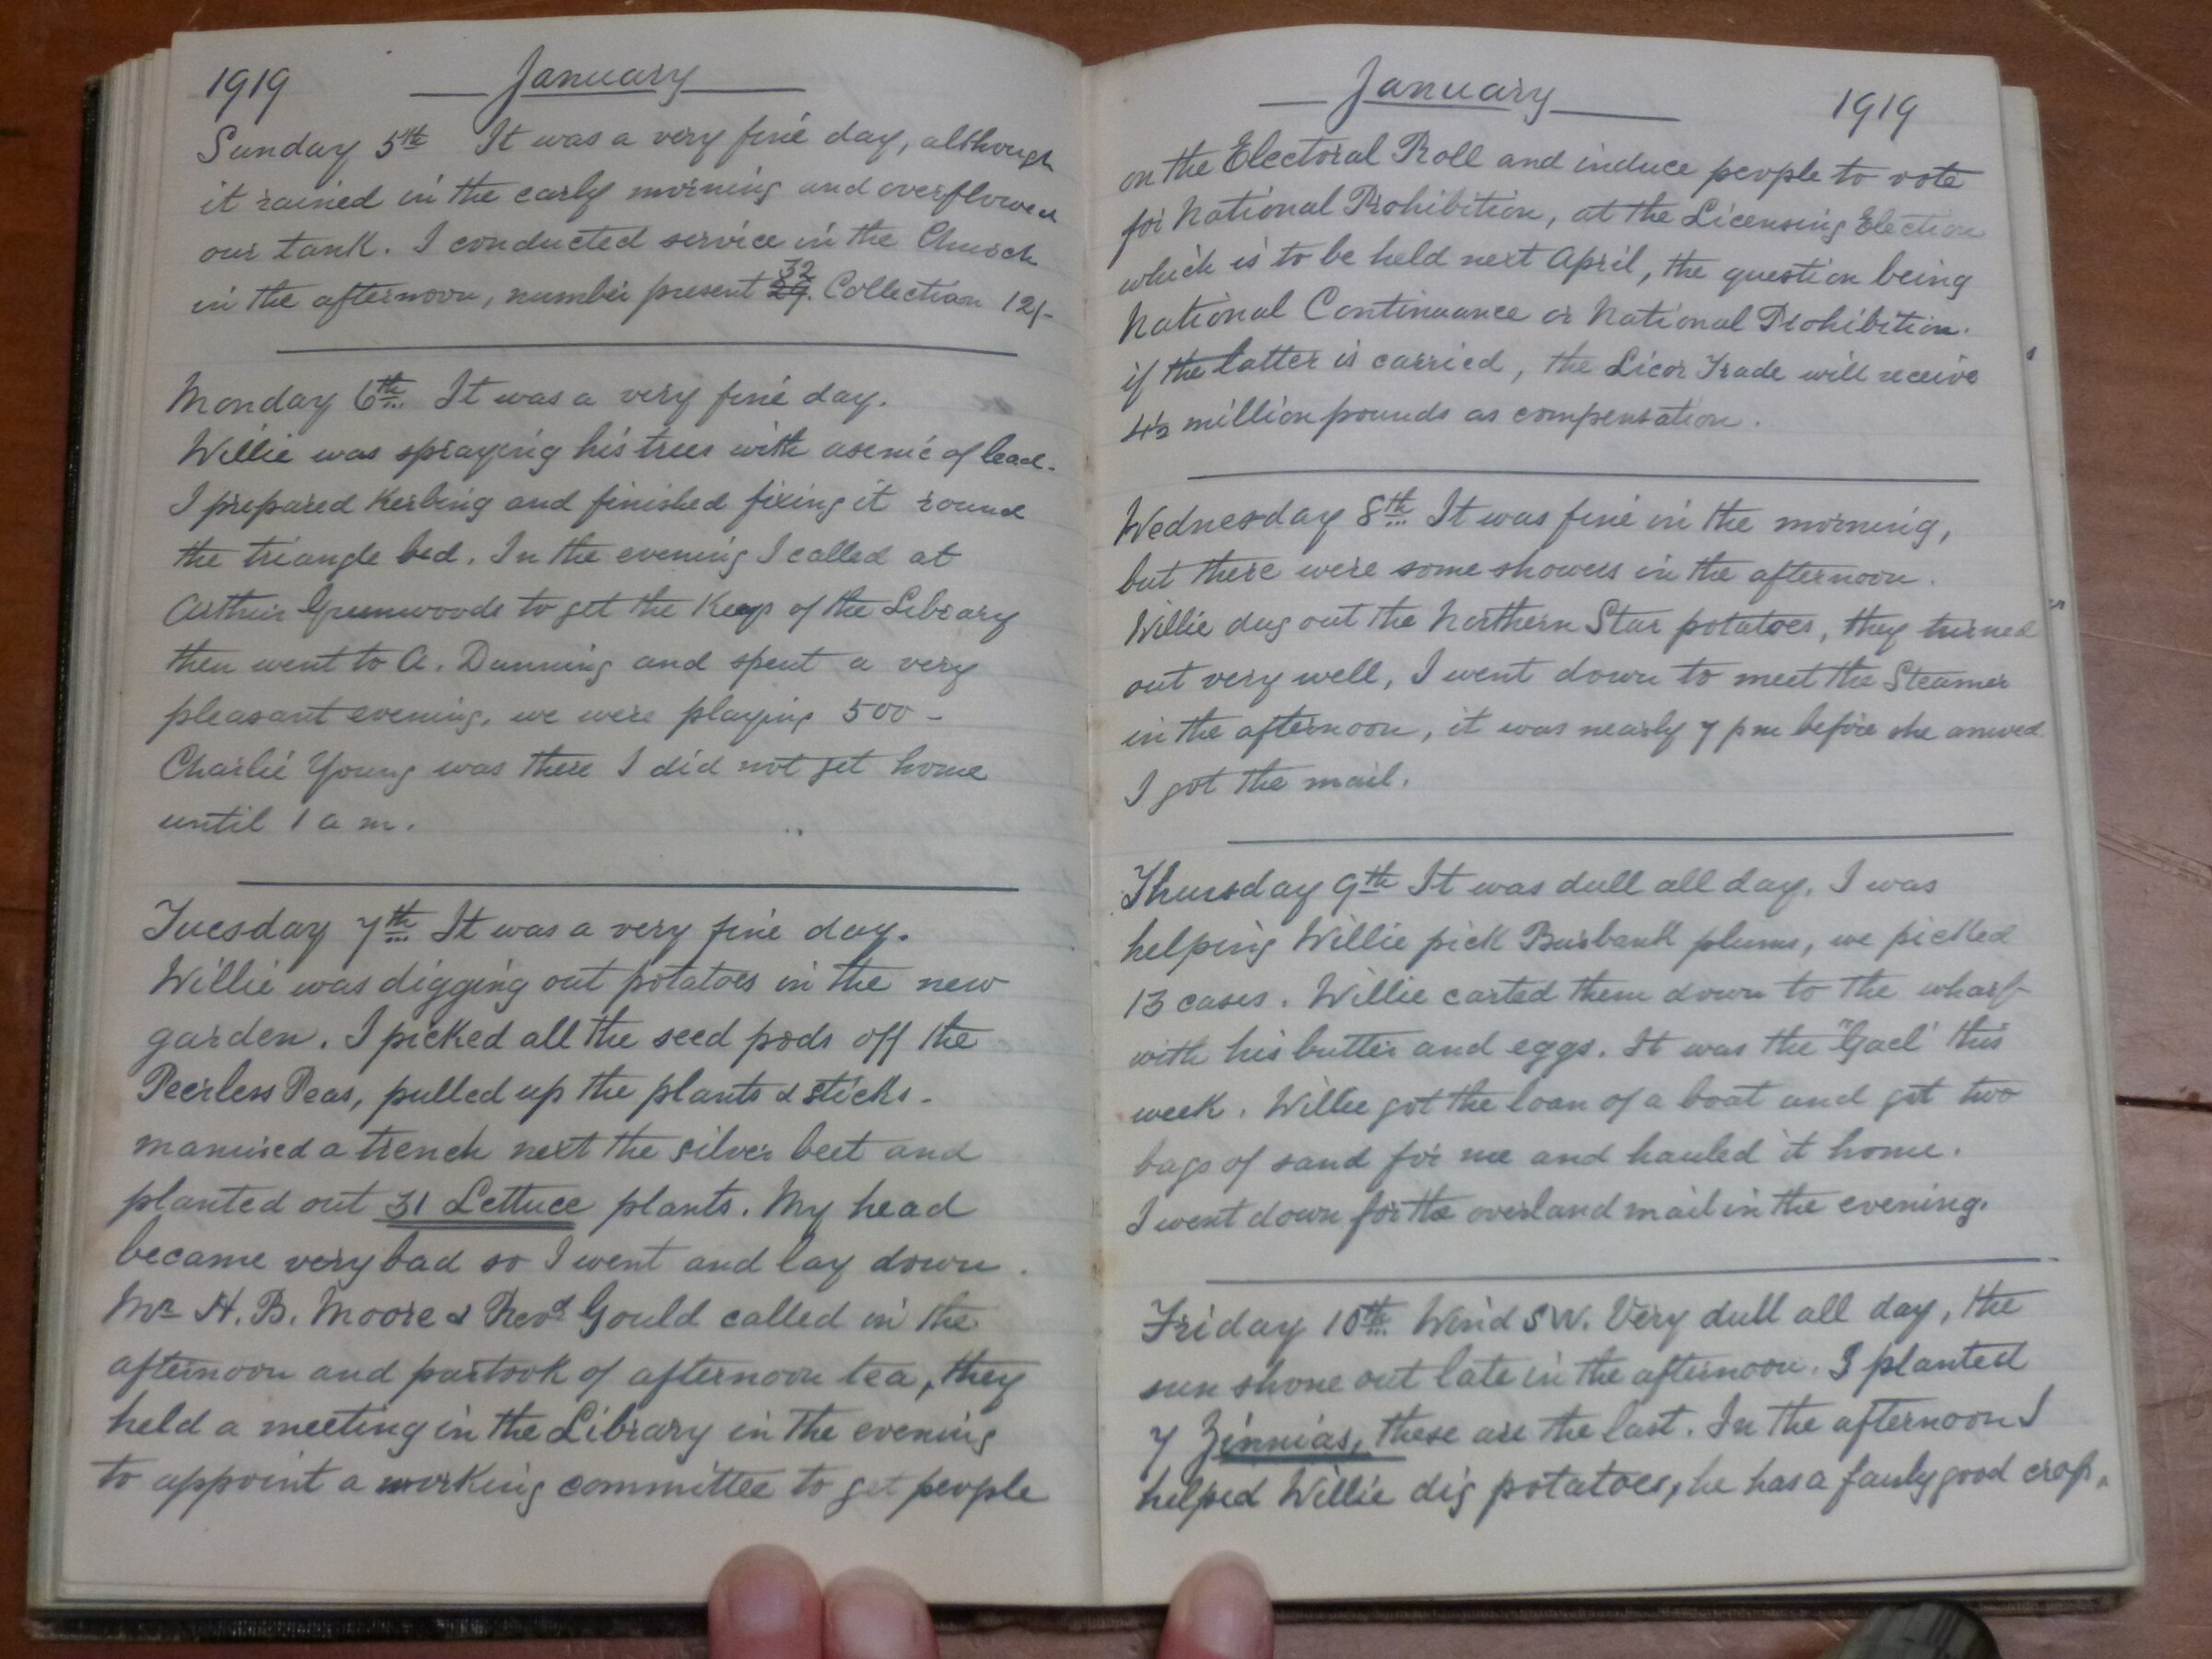 1919 January
Sunday 5th It was a very fine day, although
it rained in the early morning and overflowed
our tank. I conducted service in the Church
in the afternoon, number present 29. 32 Collection 12/-
Monday 6th It was a very fine day.
Willie was spraying his trees with asenic of lead.
I prepared Kerbing and finished fixing it round
the triangle bed. In the evening I called at
Arthur Greenwoods to get the Keys of the Library
then went to A. Dunning and spent a very
pleasant evening. we were playing 500 -
Charlie Young was there I did not get home
until 1 a m.
Tuesday 7th It was a very fine day.
Willie was digging out potatoes in the new
garden. I picked all the seed pods off the
Peerless Peas, pulled up the plants & sticks.
manured a trench next the silver beet and
planted out 31 Lettuce plants. My head
became very bad so I went and lay down.
Mr H. B. Moore & Revd Gould called in the
afternoon and partook of afternoon tea, they
held a meeting in the Library in the evening
to appoint a working committee to get people
January 1919
on the Electoral Roll and induce people to vote
for National Prohibition, at the Licensing Election
which is to be held next April, the question being
National Continuance or National Prohibition.
if the latter is carried, the Licor Trade will receive
4½ million pounds as compensation.
Wednesday 8th It was fine in the morning,
but there were some showers in the afternoon.
Willie dug out the Northern Star potatoes, they turned
out very well, I went down to meet the Steamer
in the afternoon, it was nearly 7 pm before she arrived
I got the mail.
Thursday 9th It was dull all day. I was
helping Willie pick Burbank plums, we picked
13 cases. Willie carted them down to the wharf
with his butter and eggs. It was the "Gael" this
week. Willie got the loan of a boat and got two
bags of sand for me and hauled it home.
I went down for the overland mail in the evening.
Friday 10th Wind SW. Very dull all day, the
sun shone out late in the afternoon. I planted
7 Zinnias, these are the last. In the afternoon I
helped Willie dig potatoes, he has a fairly good crop.